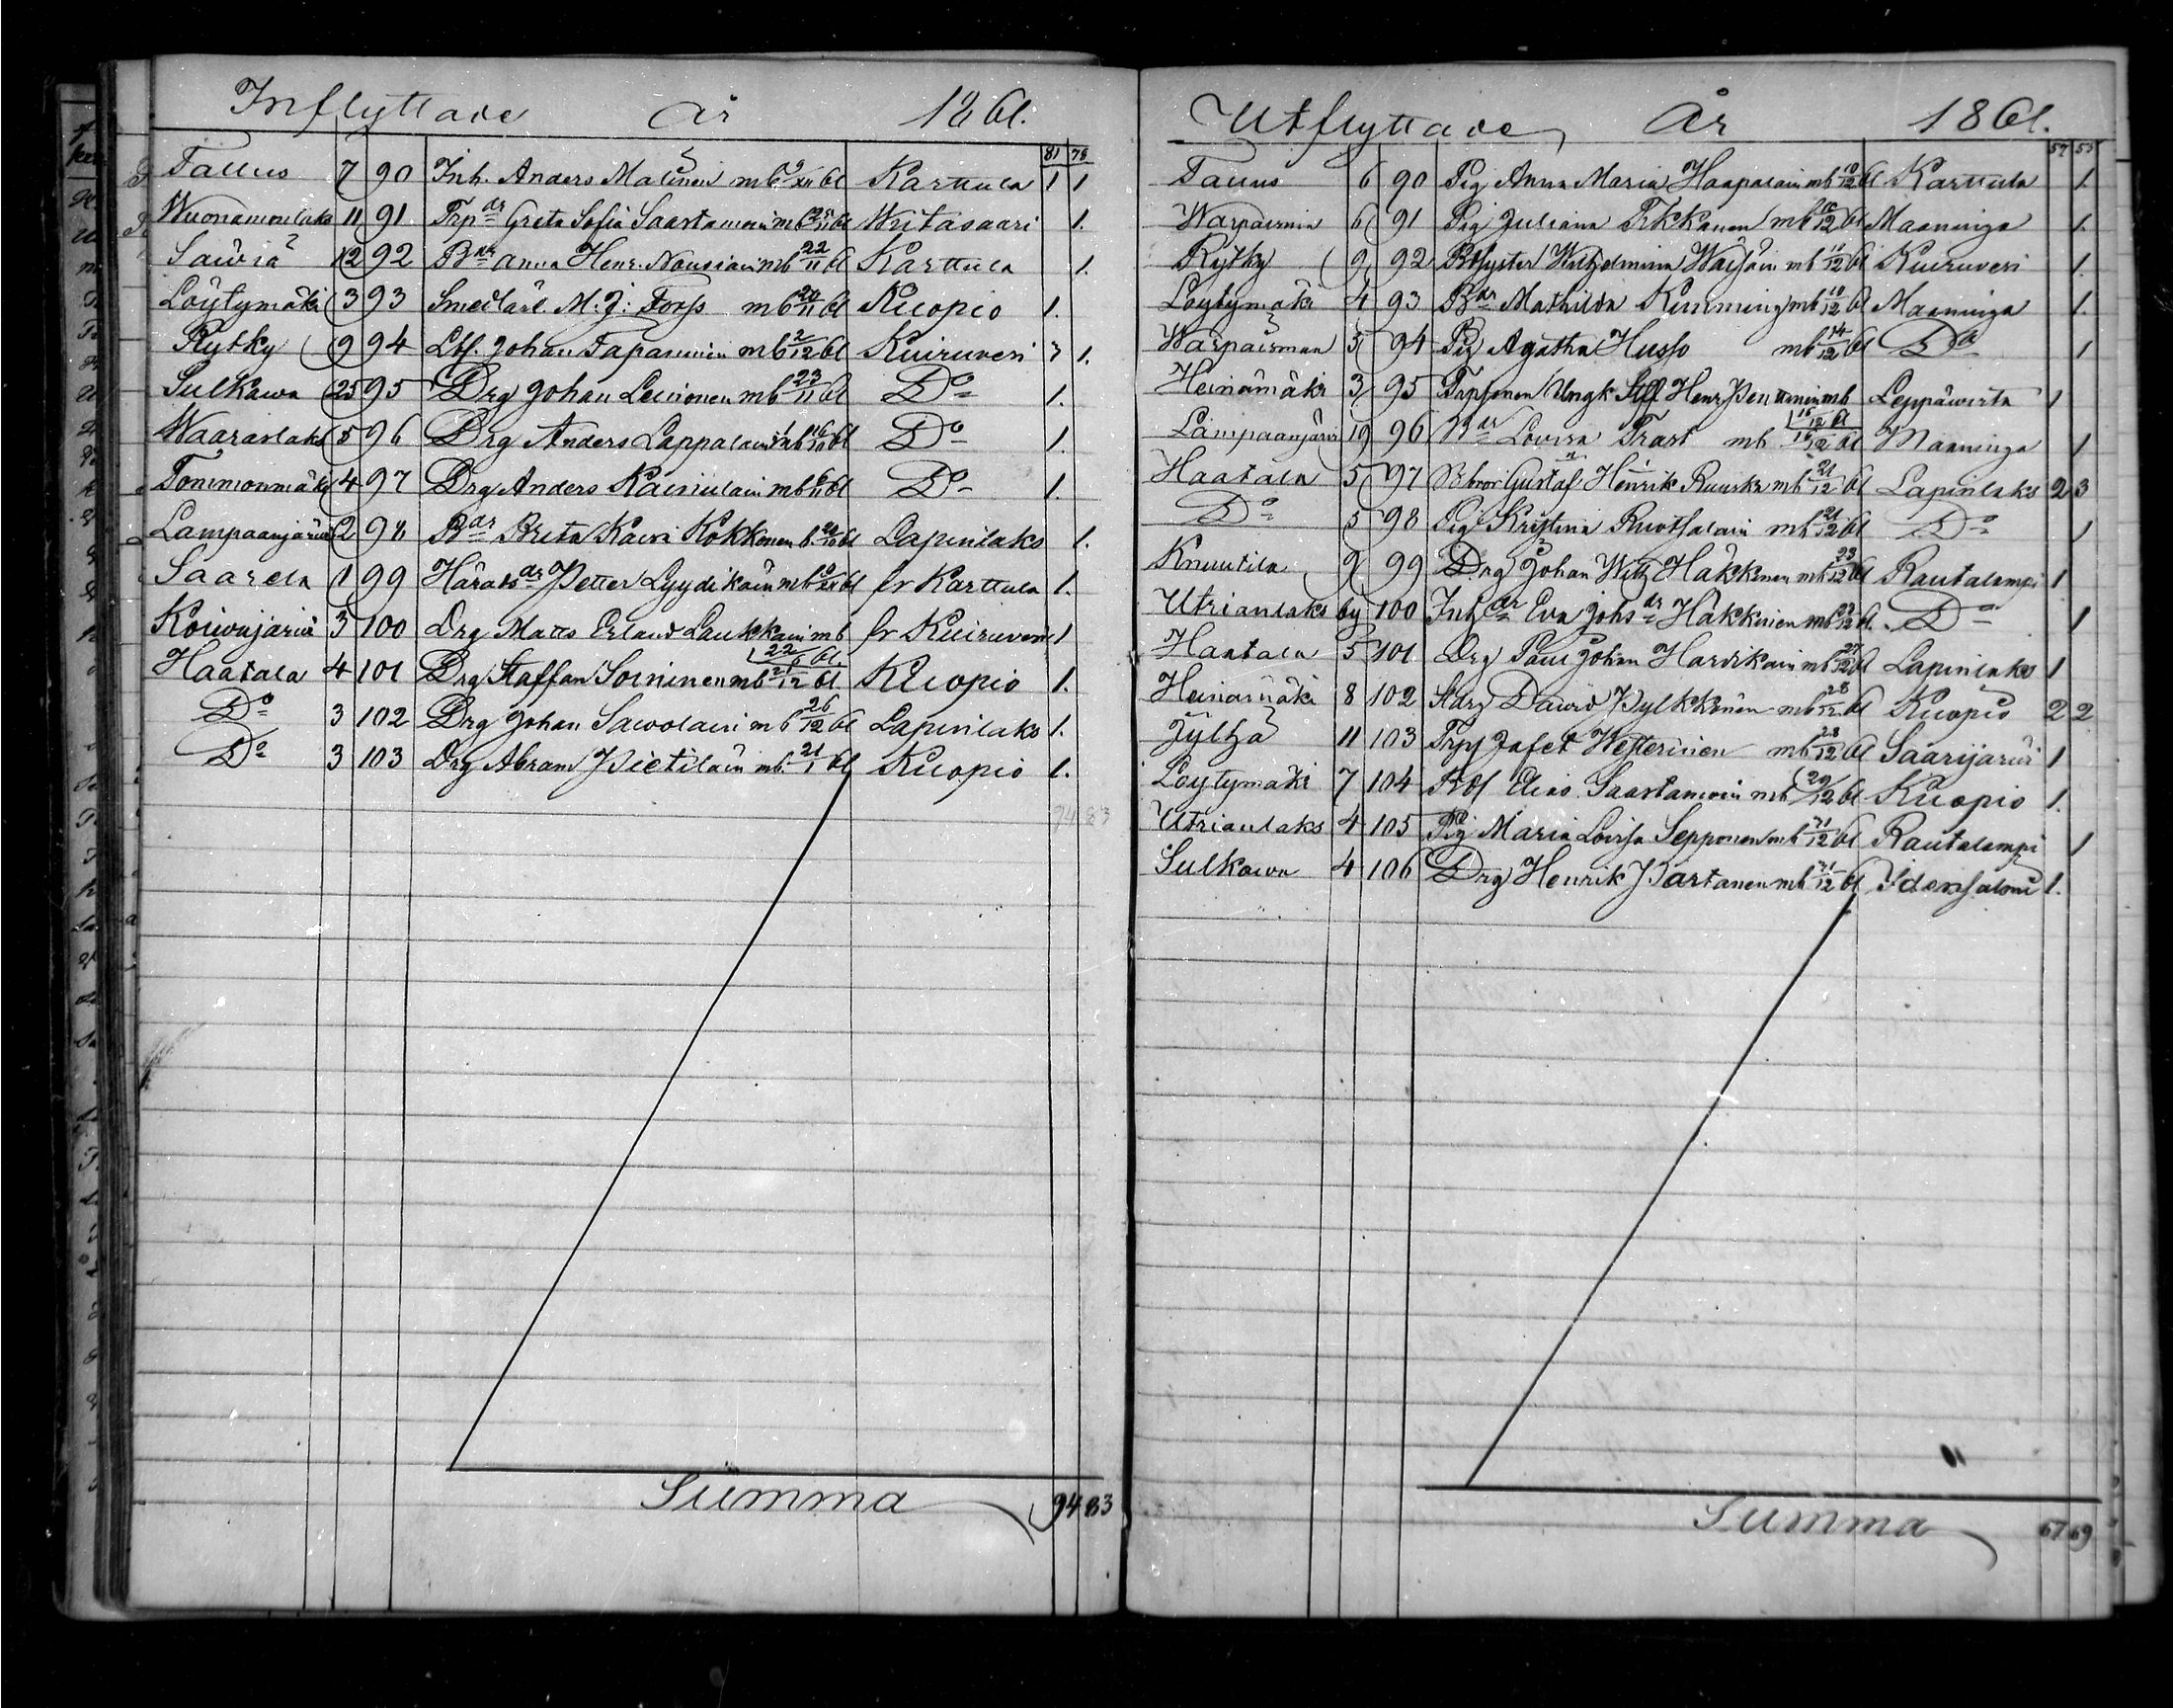 Inflyttade År 1861.
81 78
Tallus 7 90 Inh. Anders Malinen mb 9/XII 61 Karttula 1 1
Wuonamonlaks 11 91 Trp dr Greta Sofia Saastamoin mb 25/11 61 Wiitasaari 1.
Sawia 12 92 B dr Anna Henr. Nousiain mb 22/11 61 Karttula 1.
Löytymäki 3 93 Smedlärl. M. J. Forss mb 20/11 61 Kuopio 1.
Rytky 9 94 Lbf. Johan Tapaninin mb 2/12 61 Kiuruvesi 3 1.
Sulkawa 25 95 Drg Johan Leinonen mb 23/11 61 D:o 1.
Waaraslaks 5 96 Drg Anders Lappalain mb 16/10 61 D:o 1.
Tommonmäki 4 97 Drg Anders Kainulain mb 6/11 61 D:o 1.
Lampaanjärwi 2 98 B dr Brita Kaisa Kokkonen b. 20/10 61 Lapinlaks 1.
Saarela 1 99 Härads dr Petter Lyydikäin mb 9/XII 61 fr Karttula 1.
Koiwujärwi 3 100 Drg Matts Erland Laukkain mb fr Kiuruvesi 1
22/6 61.
Haatala 4 101 Drg Staffan Soininen mb 2/12 61 Kuopio 1.
D:o 3 102 Drg Johan Sawolain mb 26/12 61 Lapinlaks 1.
D:o 3 103 Drg Abram Pietiläin mb. 21/1 61 Kuopio 1.
94 83
Summa 94 83
Utflyttade År 1861.
57 53
Tallus 6 90 Pig Anna Maria Haapalain mb 10/12 61 Karttula 1.
Warpaismä 6 91 Pig Juliana Tikkanen mb 10/12 61 Maaninga 1.
Rytky 9 92 Bd syster Wilhelmina Waisäin mb 10/12 61 Kiuruvesi 1.
Löytymäki 4 93 B dr Mathilda Rimming mb 10/12 61 Maaninga 1.
Warpaisman 5 94 Pig Agatha Husso mb 14/12 61 D:o 1
Heinämäki 3 95 Torpsonen Ungk Staff Henr Penttinin mb Leppäwirta 1
16/12 61
Lampaanjärwi 19 96 B dr Lovisa Trast mb 16/12 61 Maaninga 1
Haatala 5 97 Bd bror Gustaf Henrik Ruuska mb 21/12 61 Lapinlaks 2 3
D:o 5 98 Pig Kristina Ruotsalain mb 21/12 61 D:o 1
Knuutila 9 99 Drg Johan Wilh Häkkinen mb 23/12 61 Rautalampi 1
Utrianlaks by 100 Inh dr Eva Johs dr Häkkinen mb 23/12 61. D:o 1
Haatala 5 101 Drg Paul Johan Hardikain mb 27/12 61 Lapinlaks 1
Heinämäki 8 102 Sldrg Dawid Pylkkänen mb 28/12 61 Kuopio 2 2
Jylhä 11 103 Trp Jafet Westerinen mb 28/12 61 Saarijärwi 1
Löytymäki 7 104 Elias Saastamoin mb 29/12 61 Kuopio 1.
Utrianlaks 4 105 Pig Maria Lovisa Sepponen mb 31/12 61 Rautalampi 1
Sulkawa 4 106 Drg Henrik Partanen mb 31/12 61 Idensalmi 1.
Summa 67 69